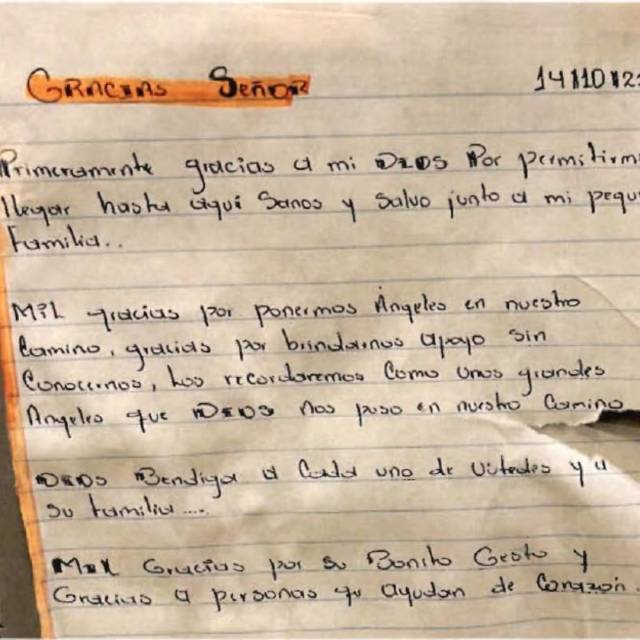 GRACIAS SEÑOR
14/10/23
Primeramente gracias a mi DIOS Por permitirm
llegar hasta aquí Sanos y Salvo junto a mi pequ
familia..
Mil gracias por ponernos Ángeles en nuestro
Camino, gracias por brindarnos apoyo sin
Conocernos, Los recordaremos Como unos grandes
Ángeles que DIOS nos puso en nuestro Camino
DIOS Bendiga a Cada uno de Ustedes y a
su familia....
Mil Gracias por su Bonito Gesto y
Gracias a personas q' ayudan de Corazón.